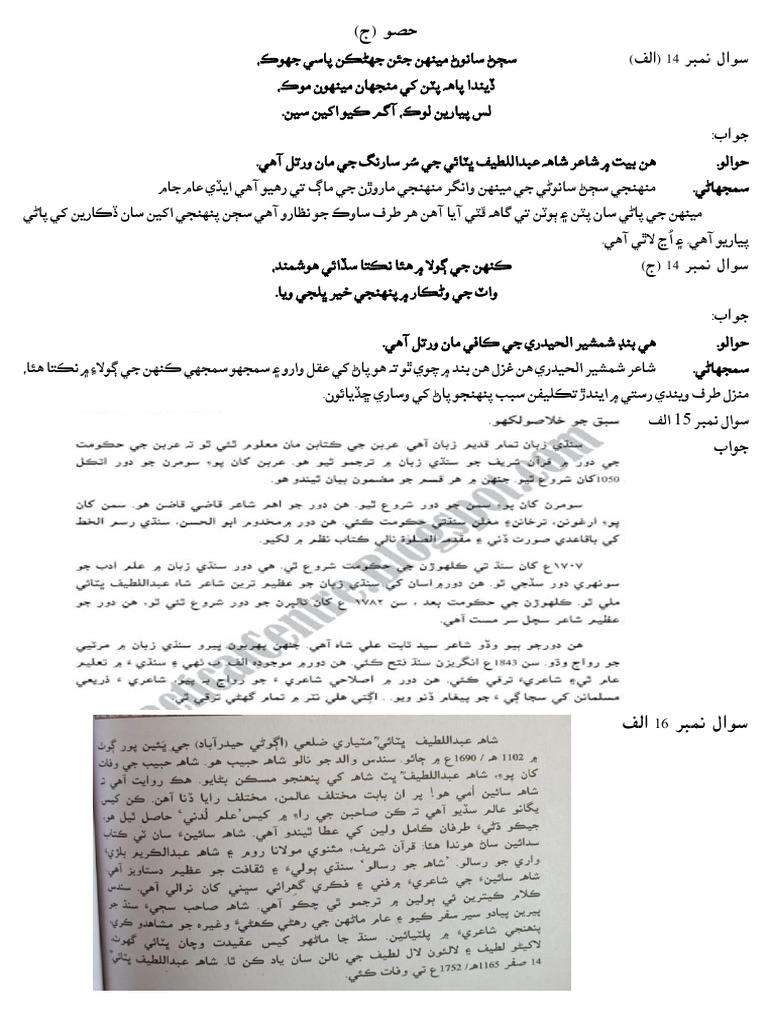 حصو (ج)
سوال نمبر 14 (الف) سڄڻ سانوڻ مينهن جئن جهڻڪن پاسي جهوڪ،
ڏيندا پاهہ پٽن کي منجهان مينهون موڪ،
لس پيارين لوڪ، آگم ڪيو اکين سين.
جواب:
حوالو. هن بيت ۾ شاعر شاهہ عبداللطيف ڀٽائي جي سُر سارنگ جي مان ورتل آهي.
سمجهاڻي. منهنجي سڄڻ سانوڻي جي مينهن وانگر منهنجي ماروڙن جي ماڳ تي رهيو آهي ايڏي عام جام
مينهن جي پاڻي سان پٽن ۽ ٻوٽن تي گاهہ ڦٽي آيا آهن هر طرف ساوڪ جو نظارو آهي سڄن پنهنجي اکين سان ڏڪارين کي پاڻي
پياريو آهي. ۽ اُڃ لاٿي آهي.
سوال نمبر 14 (ج) ڪنهن جي ڳولا ۾ هئا نڪتا سڏائي هوشمند،
واٽ جي وڻڪار ۾ پنهنجي خبر ڀلجي ويا.
جواب:
حوالو. هي بند شمشير الحيدري جي ڪافي مان ورتل آهي.
سمجهاڻي. شاعر شمشير الحيدري هن غزل هن بند ۾ چوي ٿو تہ هو پاڻ کي عقل وارو ۽ سمجهو سمجهي ڪنهن جي ڳولاءِ ۾ نڪتا هئا،
منزل طرف ويندي رستي ۾ ايندڙ تڪليفن سبب پنهنجو پاڻ کي وساري ڇڏيائون.
سوال نمبر 15 الف سبق جو خلاصو لکهو.
جواب سنڌي زبان تمام قديم زبان آهي. عربن جي ڪتابن مان معلوم ٿئي ٿو تہ عربن جي حڪومت
جي دور ۾ قرآن شريف جو سنڌي زبان ۾ ترجمو ٿيو هو. عربن کان پوءِ سومرن جو دور اٽڪل
1050کان شروع ٿيو. جنهن ۾ هر قسم جو مضمون بيان ٿيندو هو.
سومرن کان پوءِ سمن جو دور شروع ٿيو. هن دور جو اهم شاعر قاضي قاضن هو. سمن کان
پوءِ ارغونن، ترخانن ۽ مغلن سنڌتي حڪومت ڪئي. هن دور ۾ مخدوم ابو الحسن، سنڌي رسم الخط
کي باقاعدي صورت ڏني ۽ مقدم الصلوة نالي ڪتاب نظم ۾ لکيو.
١٧٠٧ع کان سنڌ تي ڪلهوڙن جي حڪومت شروع ٿي. هي دور سنڌي زبان ۾ علم ادب جو
سونهري دور سڏجي ٿو. هن دور ۾ اسان کي سنڌي زبان جو عظيم ترين شاعر شاه عبداللطيف ڀٽائي
ملي ٿو. ڪلهوڙن جي حڪومت بعد، سن ١٧٨٢ع کان ٽالپرن جو دور شروع ٿئي ٿو، هن دور جو
عظيم شاعر سچل سر مست آهي.
هن دورجو ٻيو وڏو شاعر سيد ثابت علي شاه آهي. جنهن پهريون ڀيرو سنڌي زبان ۾ مرثيي
جو رواج وڌو. سن 1843ع انگريزن سنڌ فتح ڪئي. هن دور ۾ موجوده الف ب ٺهي ۽ سنڌيءَ ۾ تعليم
عام ٿي ۽ شاعريءَ ترقي ڪئي. هن دور ۾ اصلاحي شاعريءَ جو رواج بہ پيو. شاعريءَ ذريعي
مسلمانن کي سجاڳيءَ جو پيغام ڏنو ويو.. اڳتي هلي نثر ۾ تمام گهڻي ترقي ٿي.
سوال نمبر 16 الف شاهہ عبداللطيف ڀٽائيؒ مٽياري ضلعي (اڳوڻي حيدرآباد) جي ڀَئين پور ڳوٺ
۾ 1102 هہ / 1690ع ۾ ڄائو. سندس والد جو نالو شاهہ حبيب هو. شاهہ حبيب جي وفات
کان پوءِ، شاهہ عبداللطيفؒ ڀٽ شاهہ کي پنهنجو مسڪن بڻايو. هڪ روايت آهي تہ
شاهہ سائين اُمي هو! پر ان بابت مختلف عالمن، مختلف رايا ڏنا آهن. ڪن کيس
يگانو عالم سڏيو آهي تہ ڪن صاحبن جي راءِ ۾ کيس ’علم لُدني‘ حاصل ٿيل هو،
جيڪو ڌڻيءَ طرفان ڪامل ولين کي عطا ٿيندو آهي. شاهہ سائينءَ سان ٽي ڪتاب
سدائين ساڻ هوندا هئا: قرآن شريف، مثنوي مولانا روم ۽ شاهہ عبدالڪريم بلڙيءَ
واري جو رسالو. ’شاهہ جو رسالو‘ سنڌي ٻوليءَ ۽ ثقافت جو عظيم دستاويز آهي.
شاهہ سائينءَ جي شاعريءَ ۾ فني ۽ فڪري گهرائي سڀني کان نرالي آهي. سندس
ڪلام ڪيترين ئي ٻولين ۾ ترجمو ٿي چڪو آهي. شاهہ صاحب سڄيءَ سنڌ جو
پيرين پيادو سير سفر ڪيو ۽ عام ماڻهن جي رهڻي ڪهڻيءَ وغيره جو مشاهدو ڪري،
پنهنجي شاعريءَ ۾ پلٽيائين. سنڌ جا ماڻهو کيس عقيدت وچان ڀٽائي گهوٽ،
لاکيڻو لطيف ۽ لالڻون لال لطيف جي نالن سان ياد ڪن ٿا. شاهہ عبداللطيف ڀٽائيؒ
14 صفر 1165هہ / 1752ع تي وفات ڪئي.